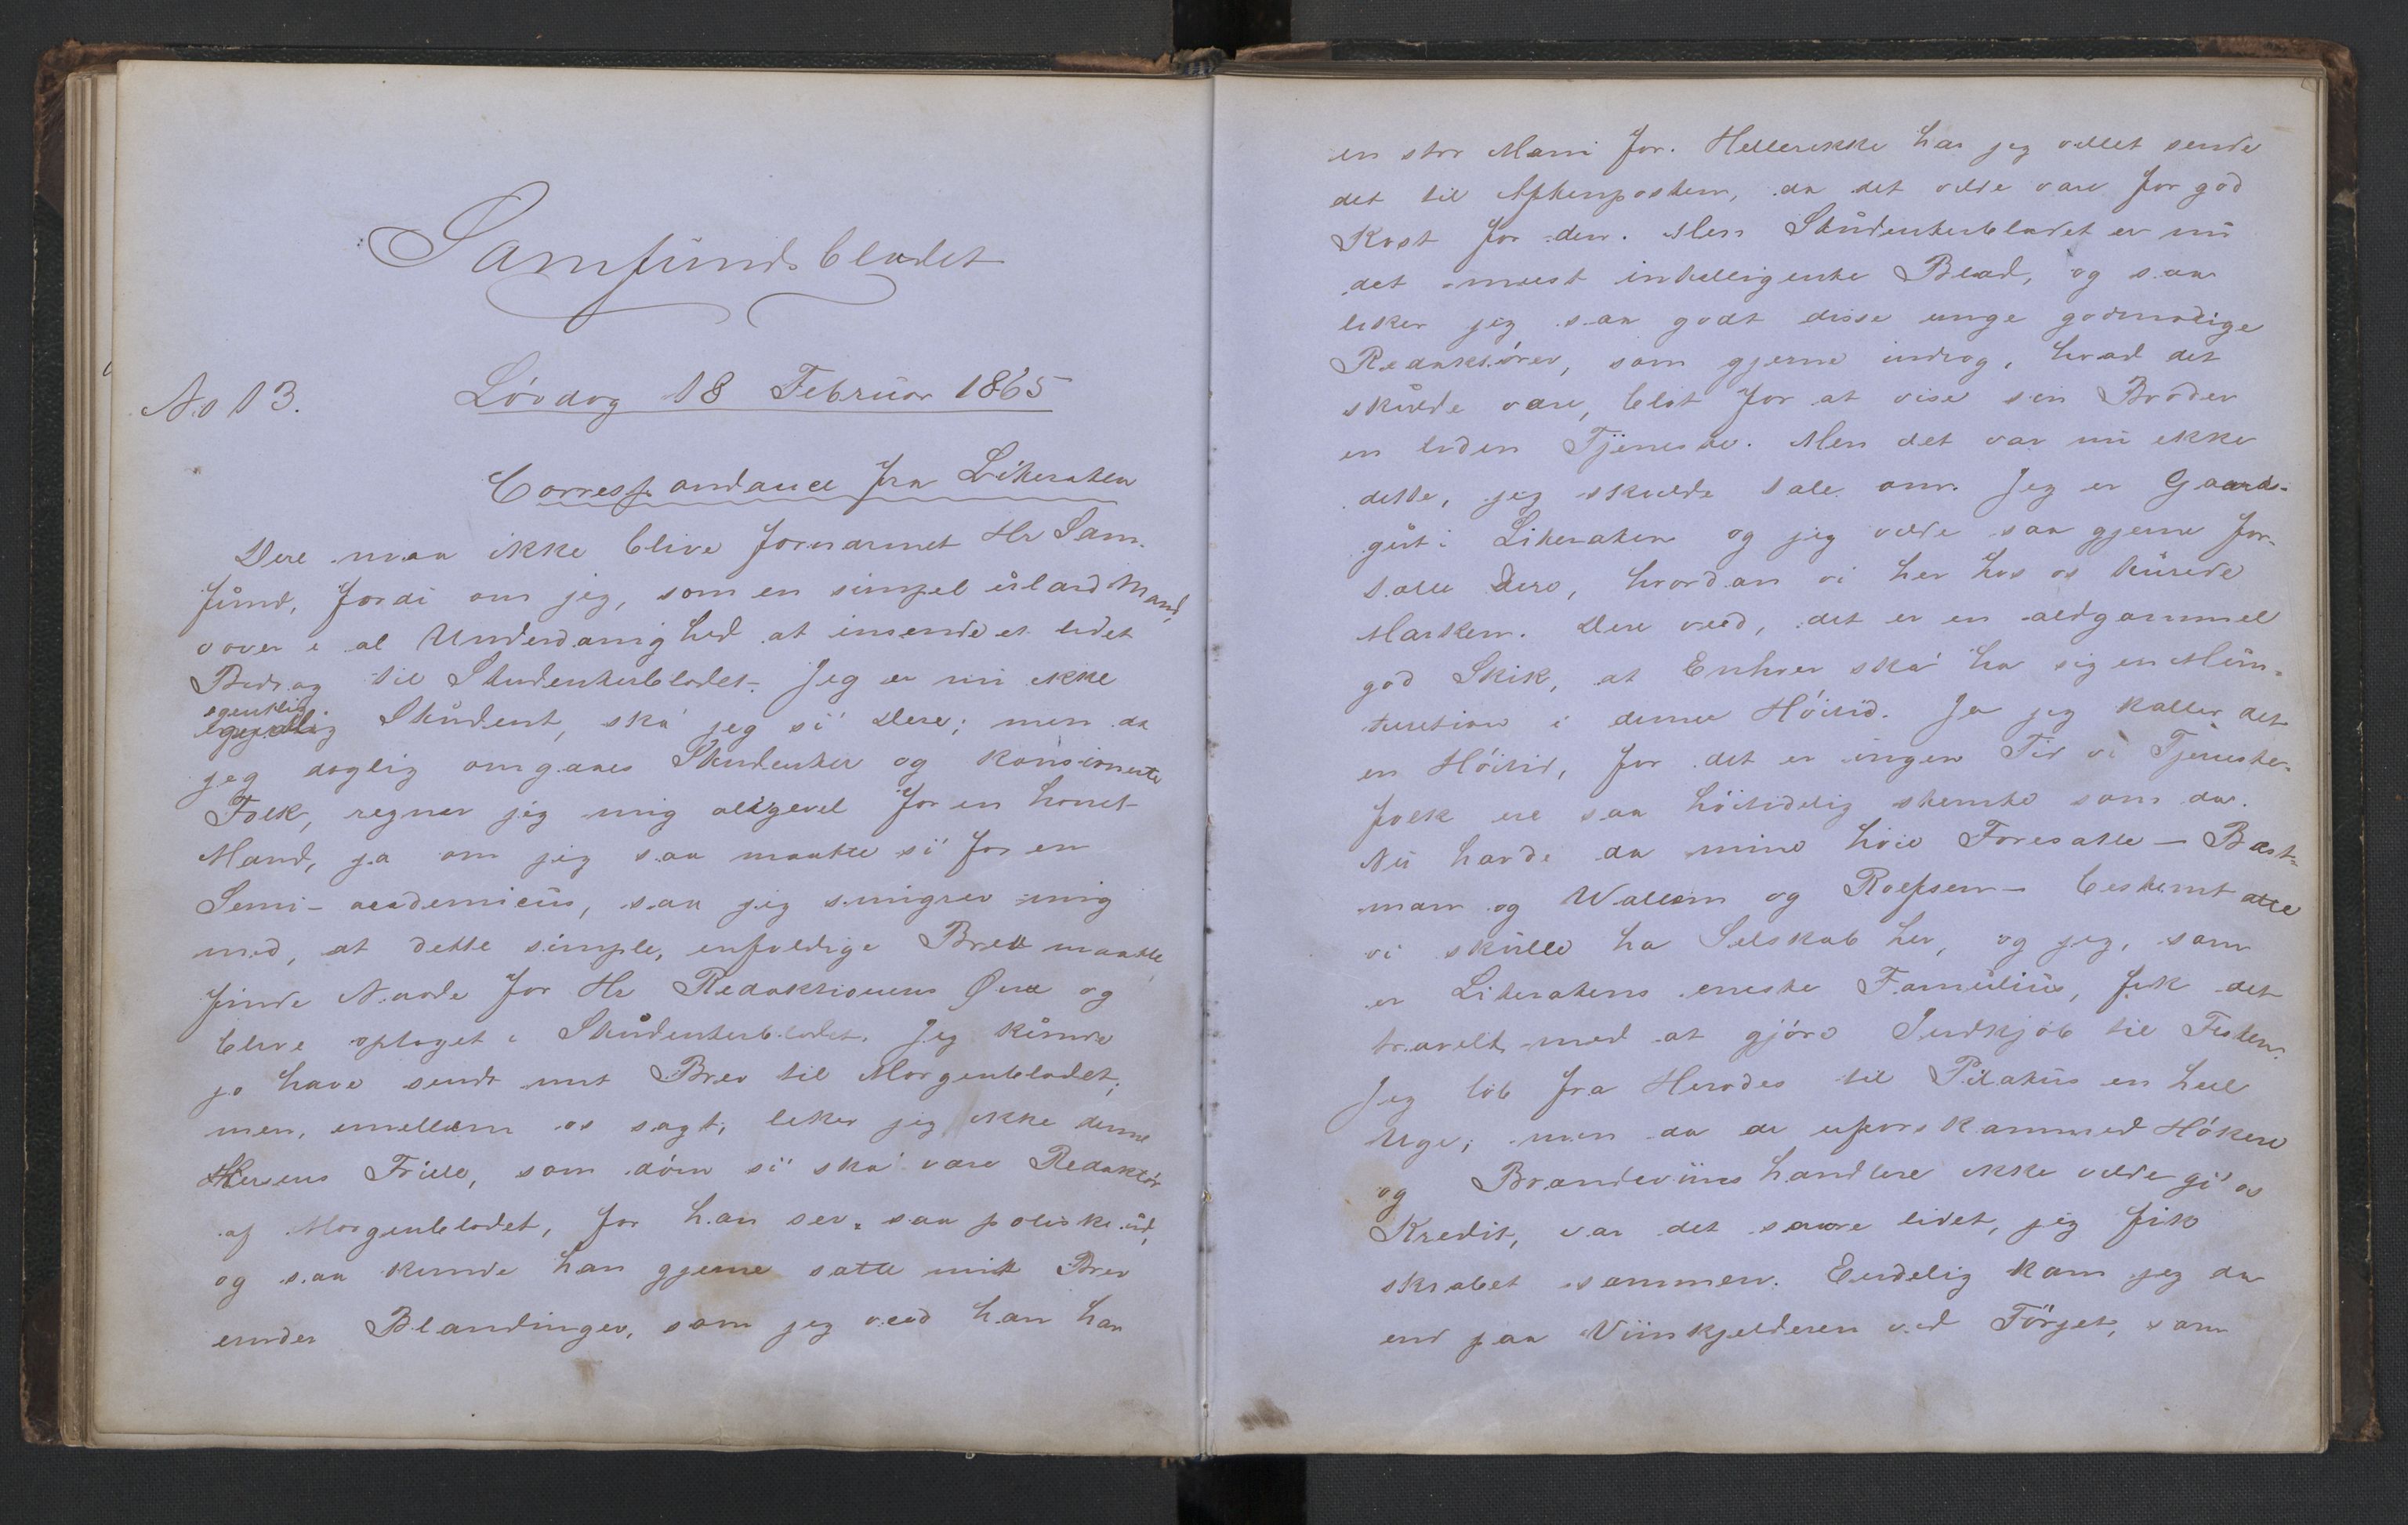 Samfundsbladet
No 13.
Löverdag 18 Februar 1865
Correspondance fra Literaten
Dere maa ikke blive fornærmet Hr Sam-
fund, fordi om jeg, som en simpel ulærd Mand,
vover i al Underdanighed at insende et lidet
Bidrag til Studenterbladet. Jeg er nu ikke
egentlig
Student, ska' jeg si' Dere; men da
jeg daglig omgaaes Studenter og konsionerte
Folk, regner jeg mig alligevel for en honet
Mand, ja om jeg saa maatte si' for en
Semi-academicus, saa jeg smigrer mig
med, at dette simple, enfoldige Brev maatte
finde Naade for Hr Redaktionens Øine og
blive optaget i Studenterbladet. Jeg kunde
jo have sendt mit Brev til Morgenbladet;
men, imellem os sagt, liker jeg ikke denne
Hersens Friele, som dom si' ska' være Redaktör
af Morgenbladet, for han ser saa polisk ud,
og saa kunde han gjerne sætte mit Brev
under Blandinger, som jeg veed han har
en stor Mani for. Hellerikke har jeg villet sende
det til Aftenposten, da det vilde være for god
Kost for den. Men Studenterbladet er nu
det meest intelligente Blad, og saa
liker jeg saa godt disse unge godmodige
Redaktörer, som gjerne indtog, hvad det
skulde være, blot for at vise sin Broder
en liden Tjeneste. Men det var nu ikke
dette, jeg skulde tale om. Jeg er Gaard-
gut i Literaten og jeg vilde saa gjerne for-
tælle Dere, hvordan vi her hos os turede
Marken. Dere veed, det er en aldgammel
god Skik, at Enhver ska' ha sig en Mun-
teration i denne Höitid. Ja jeg kaller det
en Höitid, for det er ingen Tid vi Tjeneste-
folk ere saa höitidelig stemte som da.
Nu havde da mine höie Foresatte – Bæst-
man og Wallem og Rolfsen – bestemt atte
vi skulle ha Selskab her, og jeg, som
er Literatens eneste Famulius, fik det
travelt med at gjöre Indkjöb til Festen.
Jeg löb fra Herodes til Pilatus en heel
Uge; men da de uforskammed Hökere
og Brændeviinshandlere ikke vilde gi' os
Kredit, var det saare lidet, jeg fik
skrabet sammen. Endelig kom jeg da
ind paa Viinkjelderen ved Törvet, som